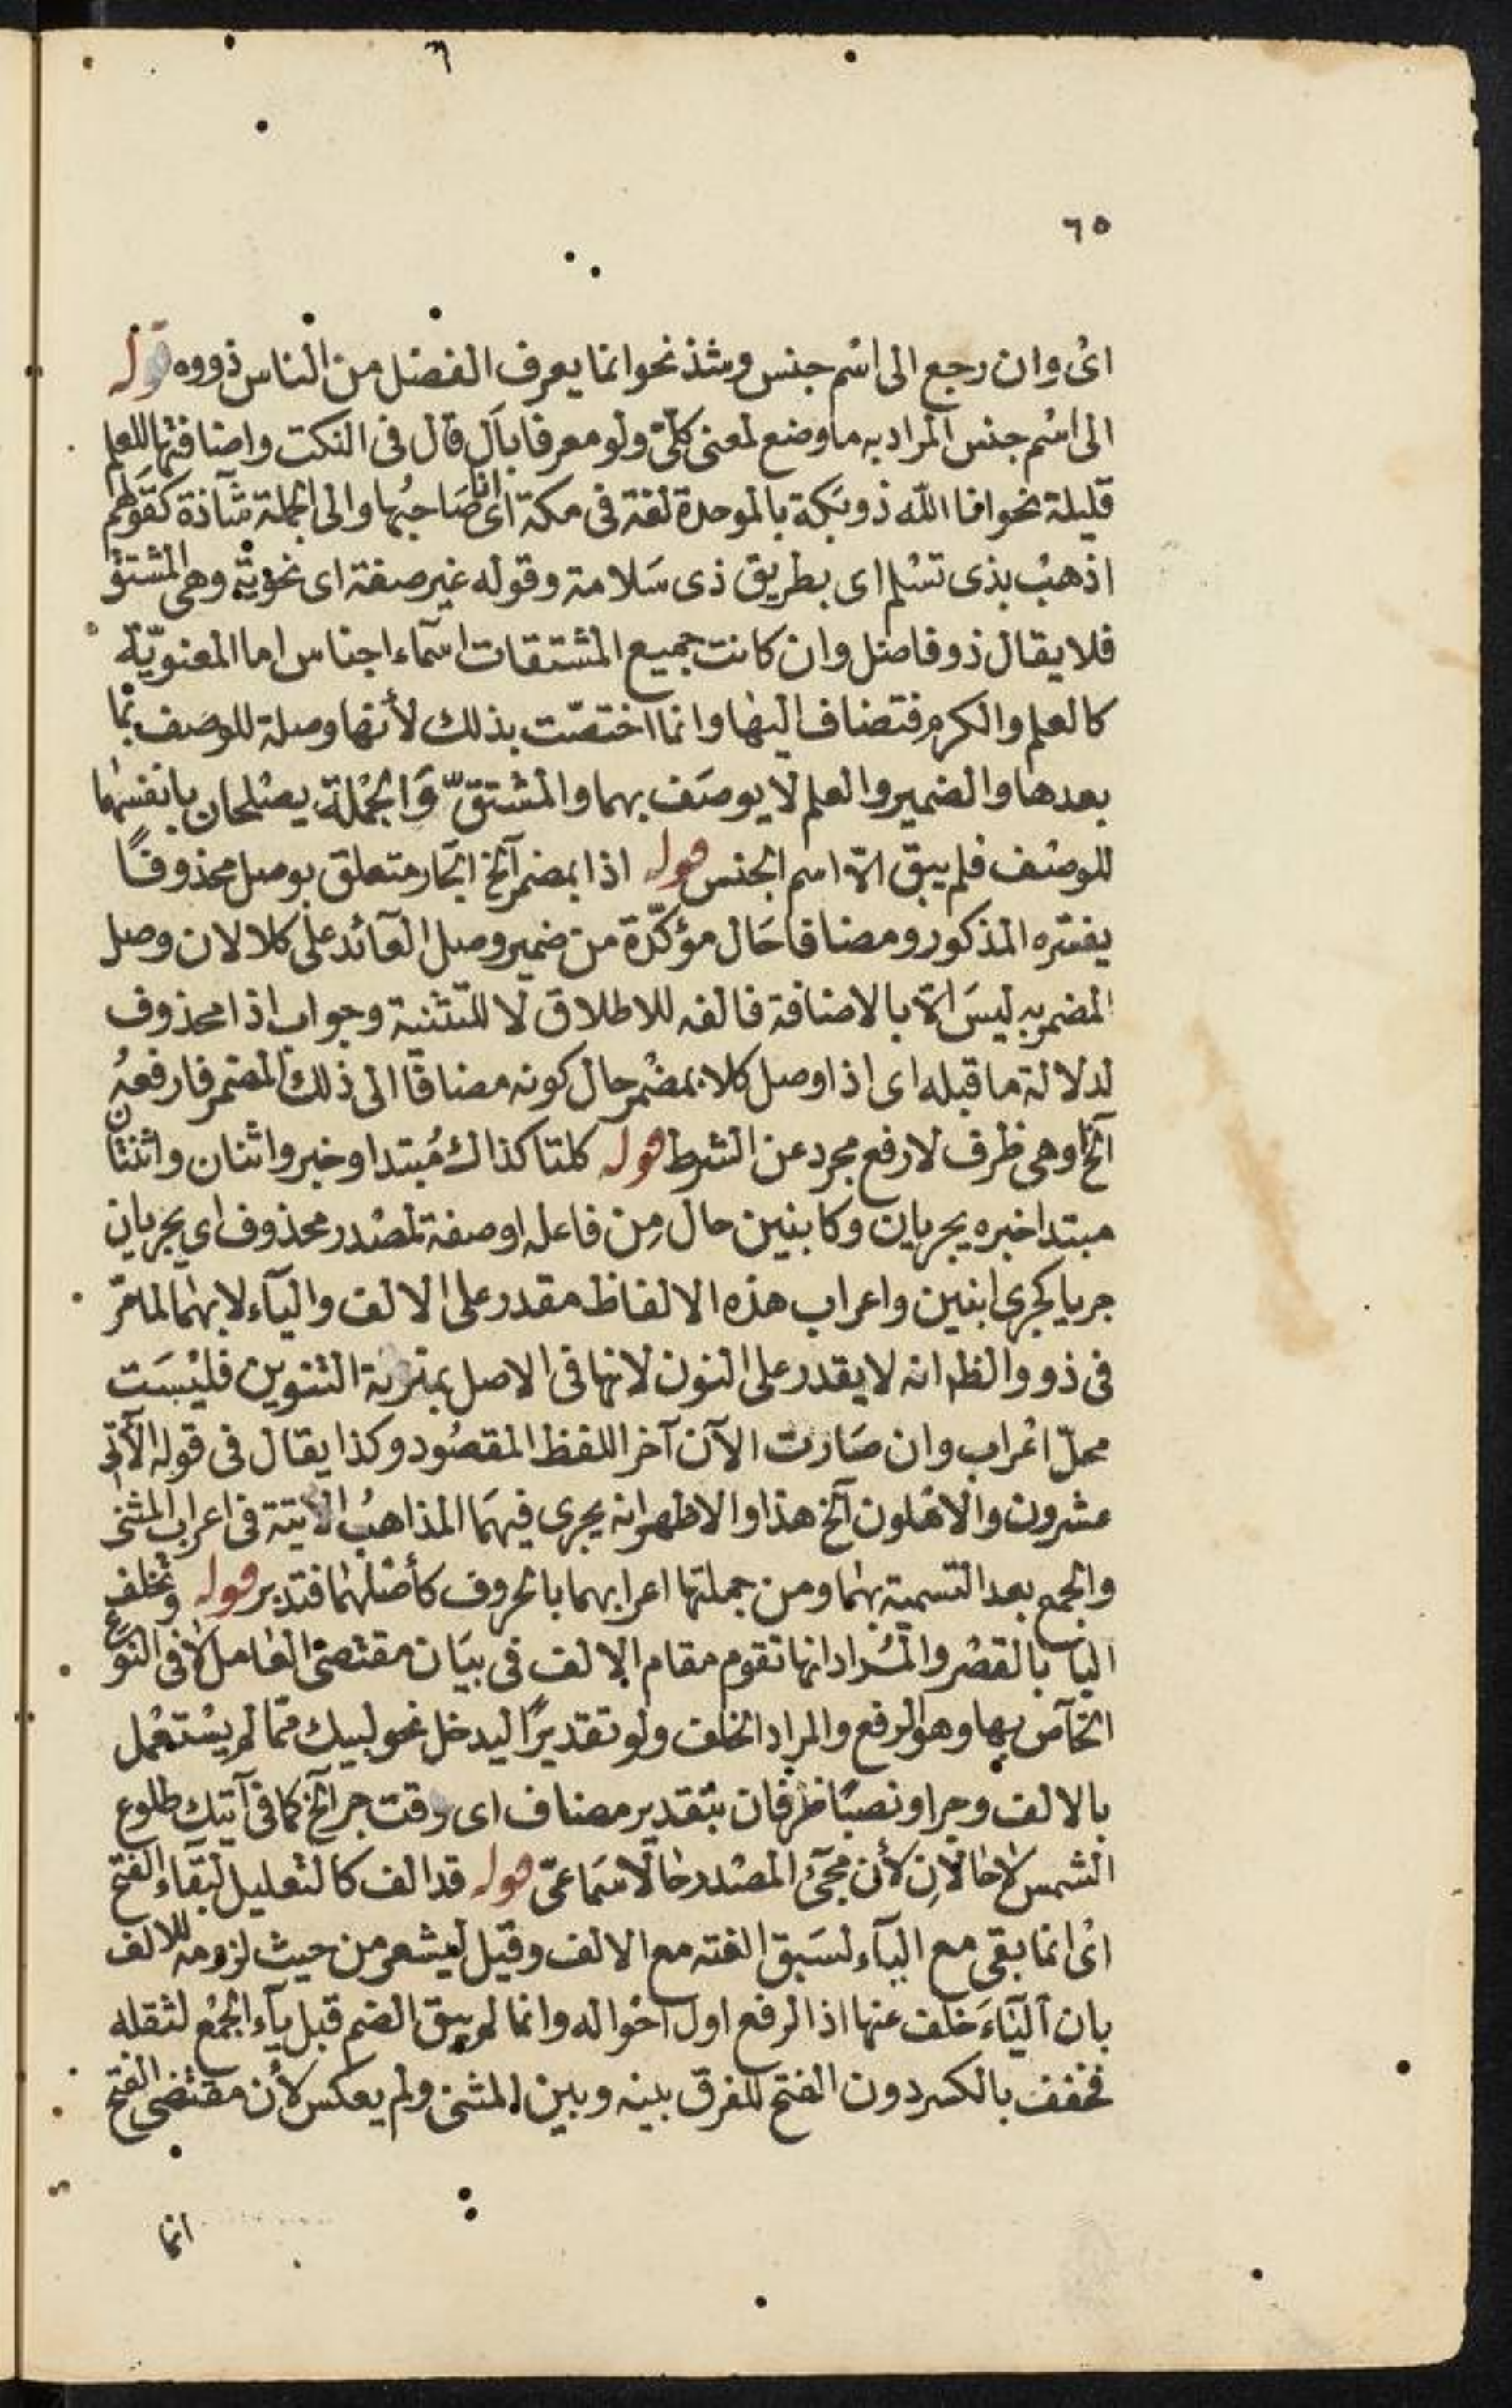 ٦
٦٥
اى وان رجع الى اسم جنس وشذ نحو انما يعرف الفضل من الناس ذووه قوله
الى اسم جنس المراد به ما وضع لمعنى كلّى ولو معرفا بال قال فى النكت واضافتها للعلم
قليلة نحو انا الله ذو بكة بالموحدة لغة فى مكة اى انا صاحبها والى الجملة شآذة كقولهم
اذهب بذى تسلم اى بطريق ذى سلامة وقوله غير صفة اى نحوية وهى المشتق
فلا يقال ذو فاضل وان كانت جميع المشتقات اسمآء اجناس اما المعنويّة
كالعلم والكرم فتضاف اليها وانما اختصّت بذلك لأنها وصلة للوصف بما
بعدها والضمير والعلم لا يوصف بهما والمشتقّ والجملة يصلحان بانفسهما
للوصف فلم يبق الّا اسم الجنس قوله اذا بمضمر آلخ الجار متعلق بوصل محذوفًا
يفسّره المذكور ومضافا حال مؤكّدة من ضمير وصل العآئد على كلا لان وصل
المضمر به ليس الّا بالاضافة فالفه للاطلاق لا للتّثنية وجواب اذا محذوف
لدلالة ما قبله اى اذا وصل كلا بمضمر حال كونه مضافًا الى ذلك المضمر فارفعه
آلخ او هى ظرف لارفع مجرد عن الشرط قوله كلتا كذاك مُبتدا وخبر واثنان واثنتان
مبتدا خبره يجريان وكابنين حال من فاعله او صفة لمصدر محذوف اى يجريان
جريا كجرى ابنين واعراب هذه الالفاظ مقدر على الالف واليآء لا بهما لما مّر
فى ذو والظم انه لا يقدر على النون لانها فى الاصل بمنزلة التنوين فليست
محلّ اعراب وان صارت الآن آخر اللفظ المقصود وكذا يقال فى قوله الآتى
عشرون والاهلون آلخ هذا والاظهر انه يجرى فيهما المذاهب الآتية فى اعراب المثنى
والجمع بعد التسمية بهما ومن جملتها اعرابهما بالحروف كأصلهما فتدبر قوله وتخلف
اليا بالقصر والمراد انها تقوم مقام الالف فى بيان مقتضى العامل لا فى النوع
الخآص بها وهو الرفع والمراد الخلف ولو تقديرًا ليدخل نحو لبيك ممّا لم يستعمل
بالالف وجرا ونصبًا ظرفان بتقدير مضاف اى وقت جر آلخ كما فى آتيك طلوع
الشمس لا حالان لأن مجئ المصدر حالا سماعىّ قوله قد الف كالتعليل لبقآء الفتح
اى انما بقى مع اليآء لسبق الفته مع الالف وقيل ليشعر من حيث لزومه للالف
بان اليآء خلف عنها اذ الرفع اول احواله وانما لم يبق الضم قبل يآء الجمع لثقله
فخفف بالكسر دون الفتح للفرق بينه وبين المثنى ولم يعكس لأن مقتضى الفتح
انما